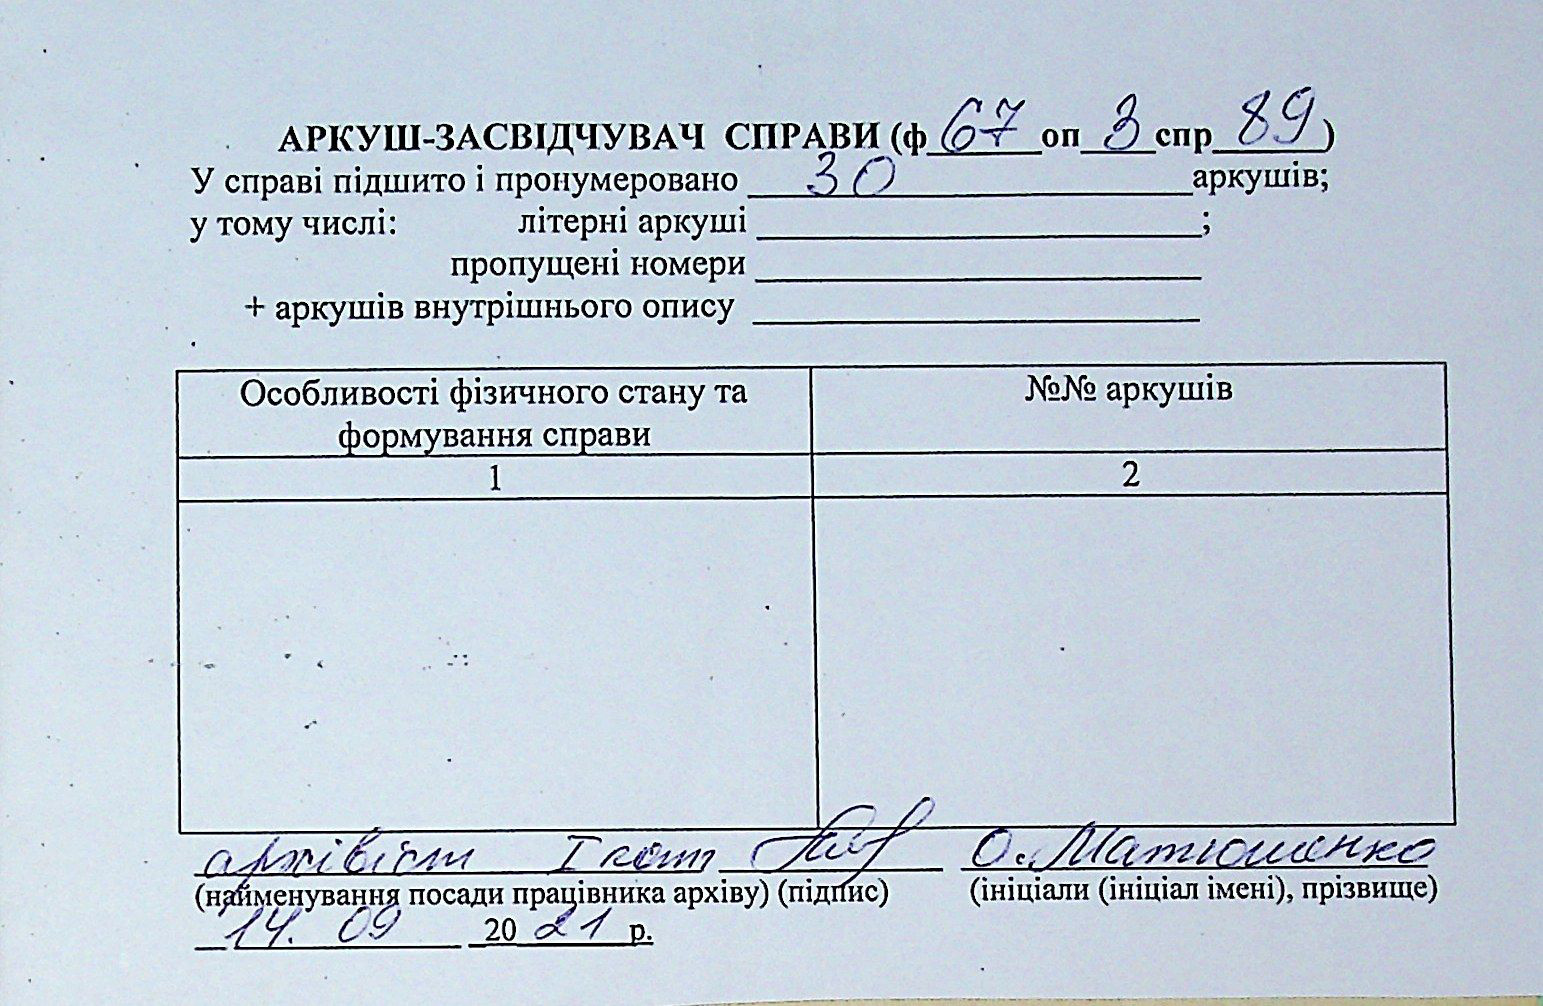 АРКУШ-ЗАСВІДЧУВАЧ СПРАВИ (ф 67 оп 3 спр 89 )
У справі підшито і пронумеровано 30 аркушів;
у тому числі: літерні аркуші ;
пропущені номери
+ аркушів внутрішнього опису
Особливості фізичного стану та №№ аркушів
формування справи
1 2
архівіст І кат О. Матюшенко
(найменування посади працівника архіву) (підпис) (ініціали (ініціал імені), прізвище)
14. 09 20 21 р.